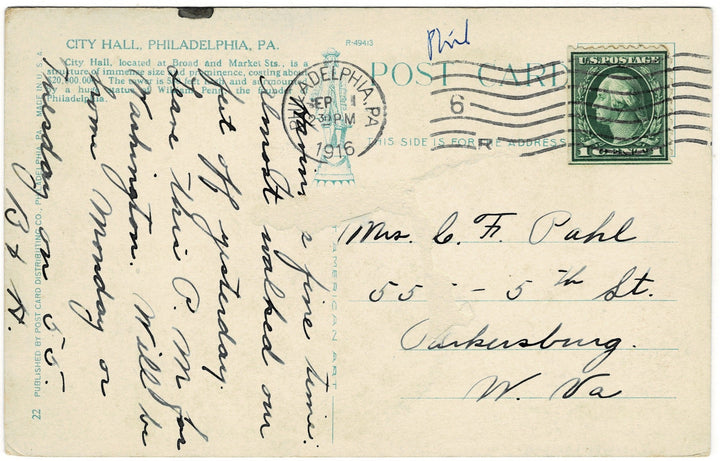 Phil
CITY HALL, PHILADELPHIA, PA.
R-49413
City Hall, located at Broad and Market Sts. is a
structure of immense size and prominence, costing about
$20,000,000. The tower is feet high and surmounted
by a huge statue of William Penn, the founder of
Philadelphia.
POST CARD
THIS SIDE IS FOR THE ADDRESS
PHILADELPHIA, PA.
SEP 1
2-30 PM
1916
6
R
U.S. POSTAGE
1 CENT 1
fine time.
almost walked our
feet off yesterday.
Leave this P.M. for
Washington. Will be
home Monday or
Tuesday on 55.
B & H.
Mrs. C. F. Pahl
55 - 5th St.
Parkersburg.
W. Va
AMERICAN ART
22 PUBLISHED BY POST CARD DISTRIBUTING CO., PHILADELPHIA, PA. MADE IN U.S.A.